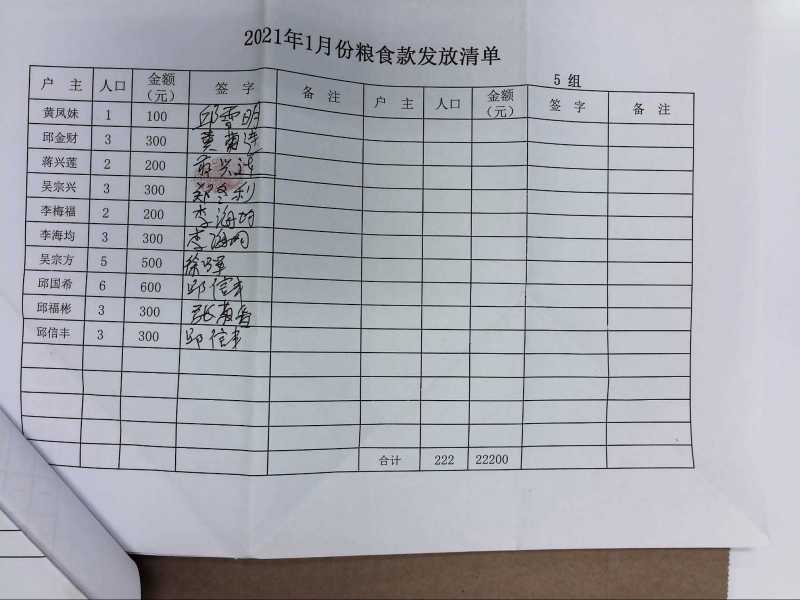 2021年1月份粮食款发放清单
5 组
户 主 人口 金额（元） 签 字 备 注 户 主 人口 金额（元） 签 字 备 注
黄凤妹 1 100 邱雪明
邱金财 3 300 黄菊莲
蒋兴莲 2 200 蒋兴莲
吴宗兴 3 300 郑冬利
李梅福 2 200 李海均
李海均 3 300 李海均
吴宗方 5 500
邱国希 6 600 邱信丰
邱福彬 3 300 张菊香
邱信丰 3 300 邱信丰
合计 222 22200